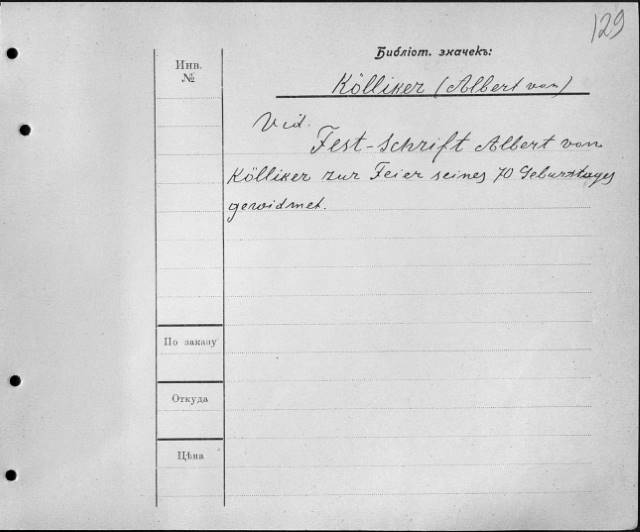 129
Библіот. значекъ:
Инв.
№
Kölliker (Albert von)
Vid.
Fest-Schrift Albert von
Kölliker zur Feier seines 70 Geburtstages
gewidmet.
По заказу
Откуда
Цѣна